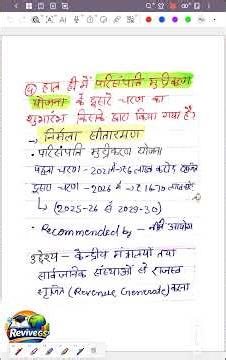 Q हाल ही में परिसंपत्ति मुद्रीकरण
योजना के दूसरे चरण का
शुभारंभ किसके द्वारा किया गया है?
→ निर्मला सीतारमण
• परिसंपत्ति मुद्रीकरण योजना
पहला चरण - 2021 में ₹6 लाख करोड़
दूसरा चरण - 2026 में ₹ 16.70 लाख करोड़
↳ (2025-26 से 2029-30)
• Recommended by - नीति आयोग
उद्देश्य - केन्द्रीय मंत्रालयों तथा
सार्वजनिक संस्थाओं से राजस्व
सृजित (Revenue Generate) करना
ReviveGS